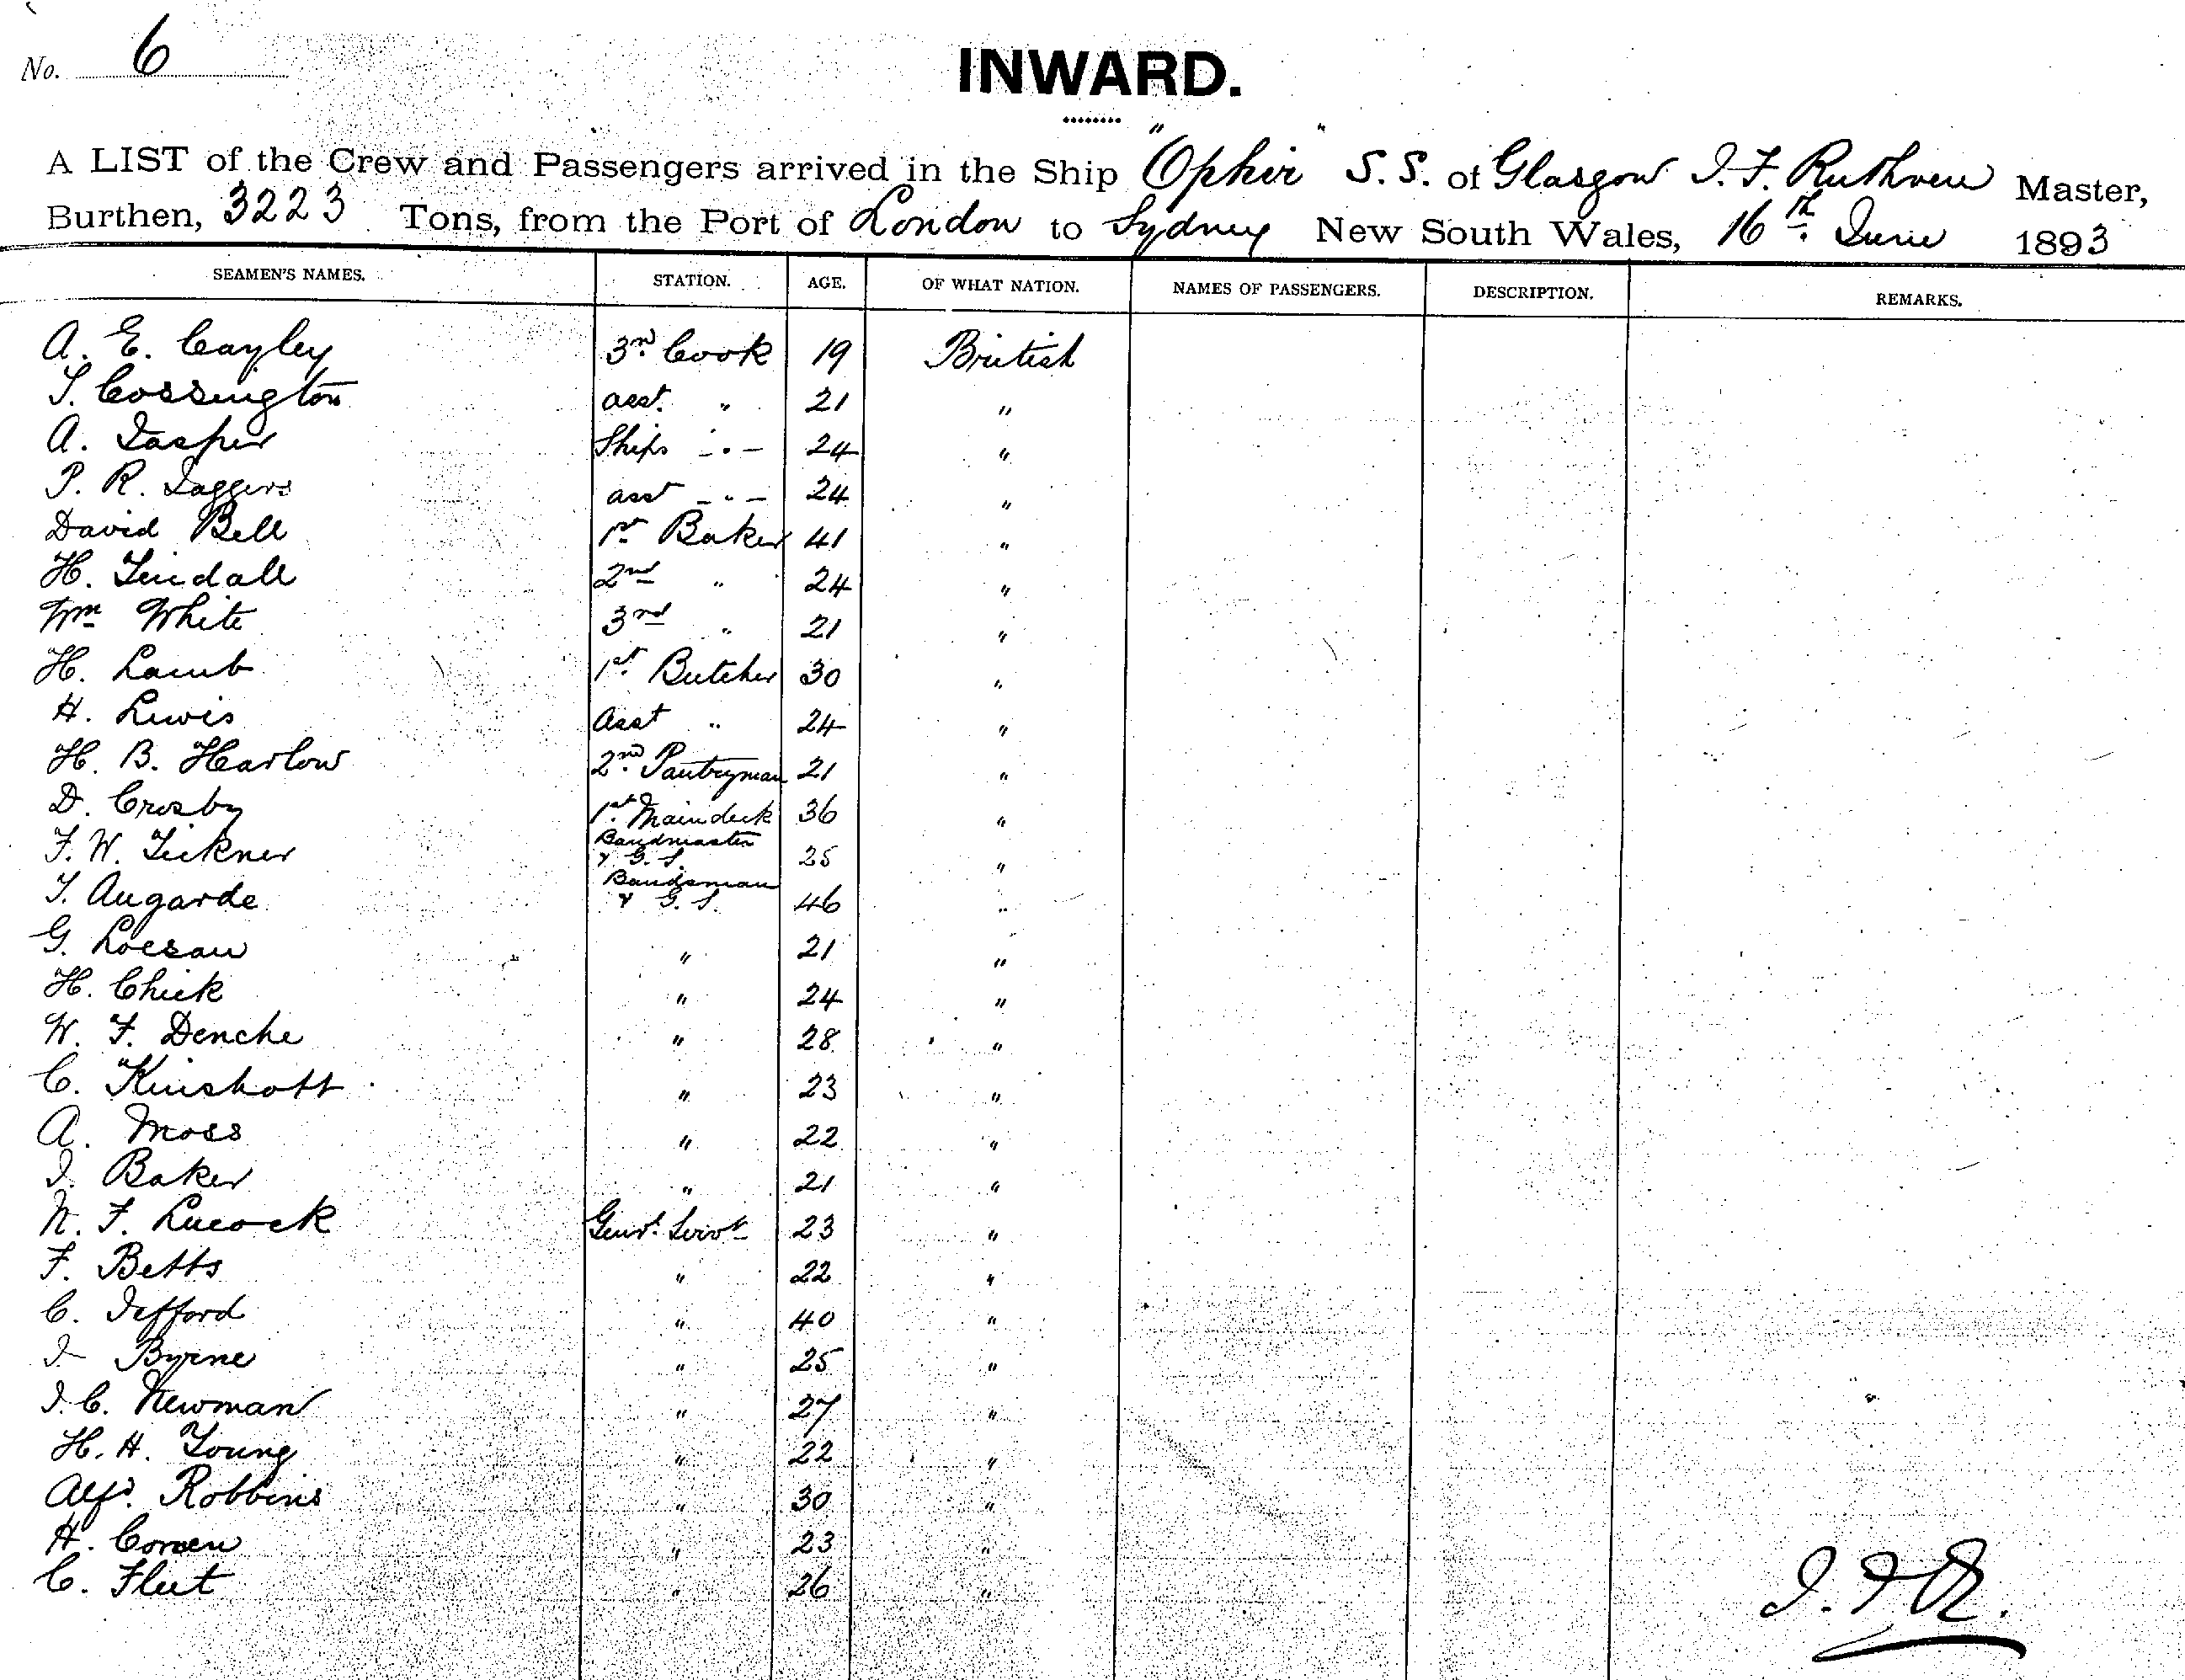 No. 6
INWARD.
A LIST of the Crew and Passengers arrived in the Ship "Ophir" S.S. of Glasgow J. F. Ruthven Master,
Burthen, 3223 Tons, from the Port of London to Sydney New South Wales, 16th June 1893
SEAMEN'S NAMES. STATION. AGE. OF WHAT NATION. NAMES OF PASSENGERS. DESCRIPTION. REMARKS.
A. E. Cayley 3rd Cook 19 British
T. Cossington asst. " 21 "
A. Jasper Ships - " - 24 "
P. R. Jaggers asst - " - 24 "
David Bell 1st Baker 41 "
H. Tindall 2nd " 24 "
Wm White 3rd " 21 "
H. Lamb 1st Butcher 30 "
H. Lewis Asst " 24 "
H. B. Harlow 2nd Pantryman 21 "
D. Crosby 1st Maindeck 36 "
F. W. Tickner Bandmaster & G. S. 25 "
T. Augarde Bandsman & G. S. 46 "
G. Loesau " 21 "
H. Chick " 24 "
W. F. Denche " 28 "
C. Kinshott " 23 "
A. Moss " 22 "
J. Baker " 21 "
N. F. Lucock Genl. Servt 23 "
F. Betts " 22 "
C. Jefford " 40 "
J. Byrne " 25 "
J. C. Newman " 27 "
H. H. Young " 22 "
Alfd. Robbins " 30 "
H. " 23 "
C. Fleet " 26 "
J. F. R.